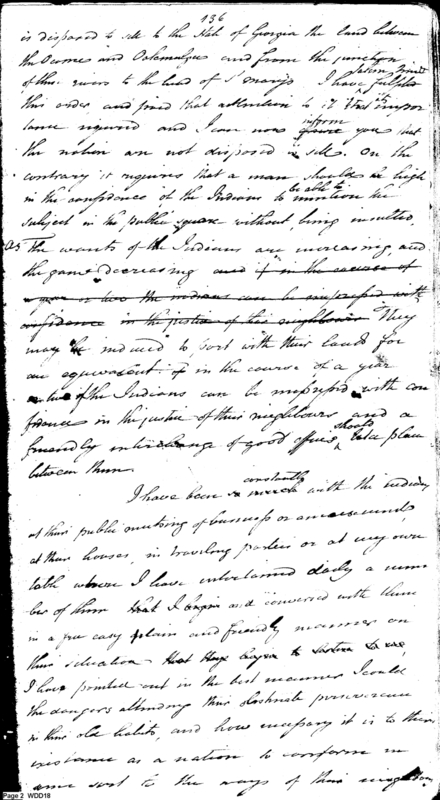 136
is disposed to sell to the State of Georgia the land between
the Oconee and Oakmulgee and from the junction
of these rivers to the head of St marys. I have fulfilled
this order and paid that attention to it its impor
tance required and I can now inform you that
the nation are not disposed to sell. On the
contrary it requires that a man should be high
in the confidence of the Indians to be able to mention the
subject in the public square without being insulted.
As The wants of the Indians are increasing, and
the game decreasing and if in the course of
a year or two the indians can be impressed with
confidence in the justice of their neighbours They
may be induced to part with their lands for
an equivalent if in the course of a year
or two of the Indians can be impressed with con
fidence in the justice of their neighbours and a
friendly interchange of good offices should take place
between them.
I have been so much constantly with the indians
at their public meeting of business or amusements,
at their houses, in traveling parties or at my own
table where I have entertained daily a num
ber of them that I began and conversed with them
in a free easy plain and friendly manner on
their situation that they began to
I have pointed out in the best manner I could
the dangers attending their obstinate perseverence
in their old habits, and how necessary it is to their
existance as a nation to conform in
some sort to the ways of their neighbours
Page 2 WDD18